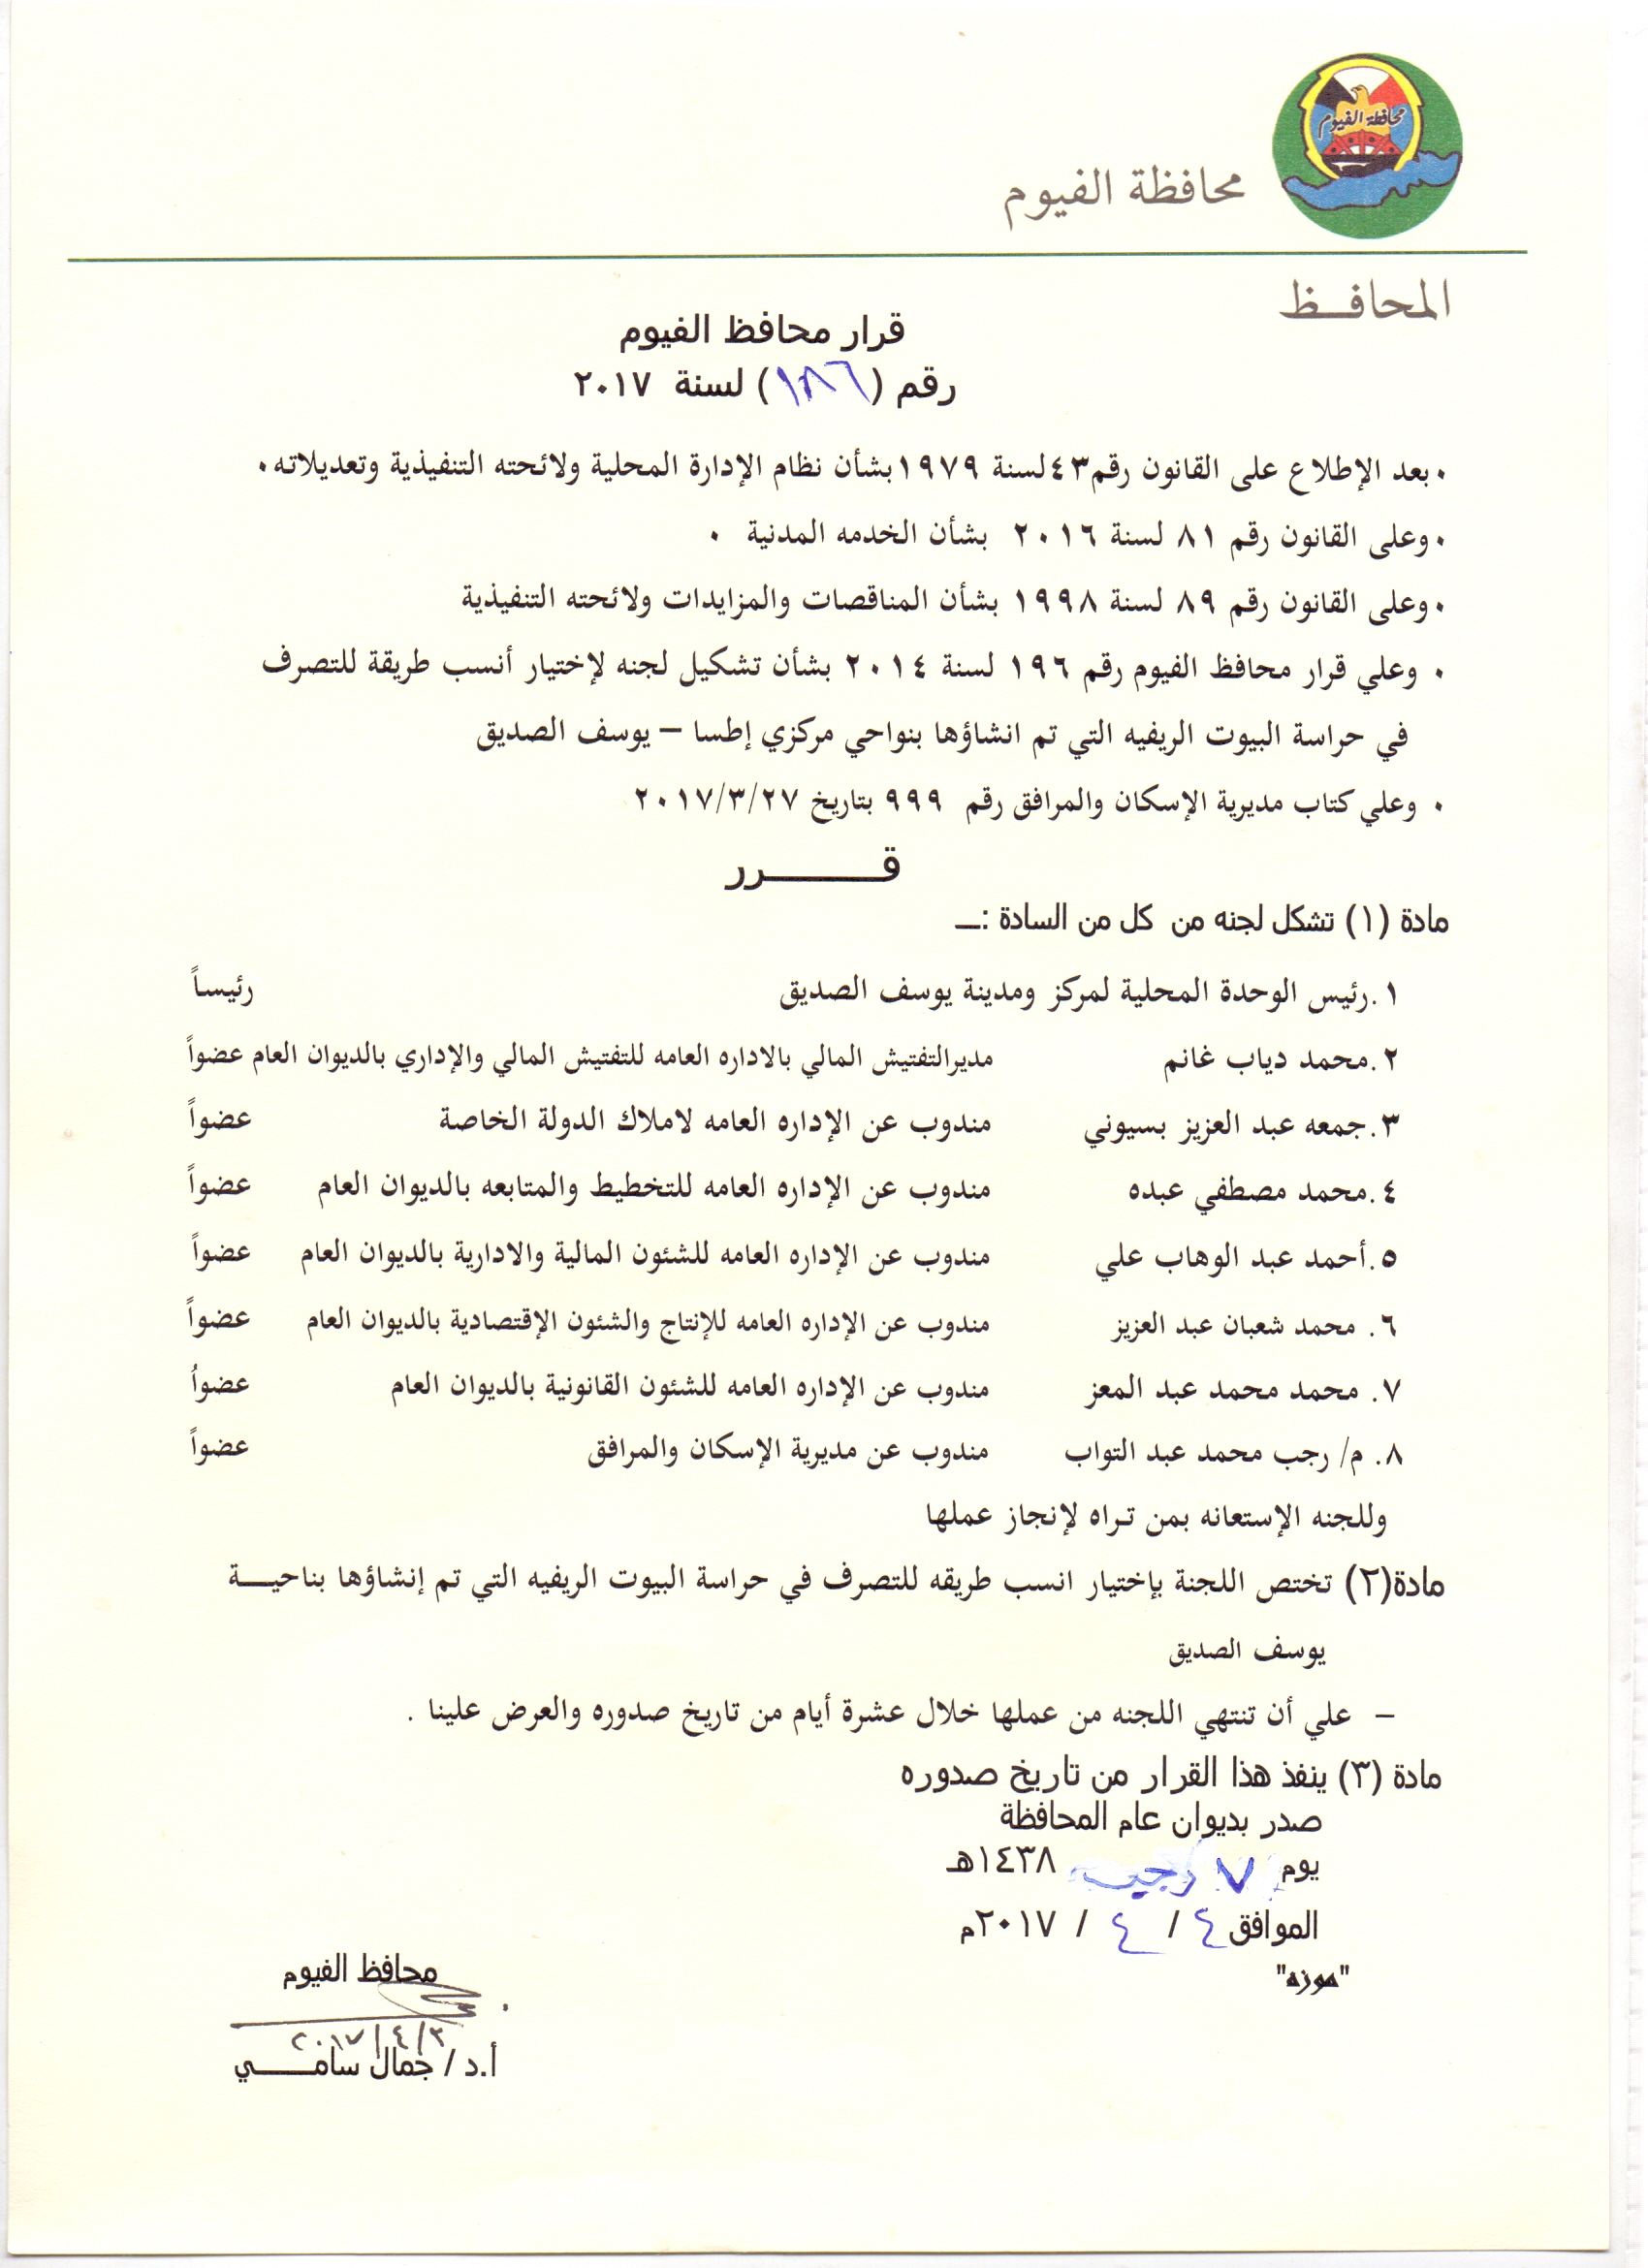 محافظة الفيوم
محافظة الفيوم
المحافــظ
قرار محافظ الفيوم
رقم (١٨٦) لسنة ٢٠١٧
٠ بعد الإطلاع على القانون رقم٤٣لسنة ١٩٧٩بشأن نظام الإدارة المحلية ولائحته التنفيذية وتعديلاته٠
٠ وعلى القانون رقم ٨١ لسنة ٢٠١٦ بشأن الخدمه المدنية ٠
٠ وعلى القانون رقم ٨٩ لسنة ١٩٩٨ بشأن المناقصات والمزايدات ولائحته التنفيذية
٠ وعلي قرار محافظ الفيوم رقم ١٩٦ لسنة ٢٠١٤ بشأن تشكيل لجنه لإختيار أنسب طريقة للتصرف
في حراسة البيوت الريفيه التي تم انشاؤها بنواحي مركزي إطسا – يوسف الصديق
٠ وعلي كتاب مديرية الإسكان والمرافق رقم ٩٩٩ بتاريخ ٢٠١٧/٣/٢٧
قــــــرر
مادة (١) تشكل لجنه من كل من السادة :ـــ
١.رئيس الوحدة المحلية لمركز ومدينة يوسف الصديق رئيساً
٢.محمد دياب غانم مديرالتفتيش المالي بالاداره العامه للتفتيش المالي والإداري بالديوان العام عضواً
٣.جمعه عبد العزيز بسيوني مندوب عن الإداره العامه لاملاك الدولة الخاصة عضواً
٤.محمد مصطفي عبده مندوب عن الإداره العامه للتخطيط والمتابعه بالديوان العام عضواً
٥.أحمد عبد الوهاب علي مندوب عن الإداره العامه للشئون المالية والادارية بالديوان العام عضواً
٦. محمد شعبان عبد العزيز مندوب عن الإداره العامه للإنتاج والشئون الإقتصادية بالديوان العام عضواً
٧. محمد محمد عبد المعز مندوب عن الإداره العامه للشئون القانونية بالديوان العام عضواُ
٨. م/ رجب محمد عبد التواب مندوب عن مديرية الإسكان والمرافق عضواً
وللجنه الإستعانه بمن تـراه لإنجاز عملها
مادة(٢) تختص اللجنة بإختيار انسب طريقه للتصرف في حراسة البيوت الريفيه التي تم إنشاؤها بناحيـــة
يوسف الصديق
– علي أن تنتهي اللجنه من عملها خلال عشرة أيام من تاريخ صدوره والعرض علينا .
مادة (٣) ينفذ هذا القرار من تاريخ صدوره
صدر بديوان عام المحافظة
يوم ٧ رجب ١٤٣٨هـ
الموافق ٤ / ٤ / ٢٠١٧م
"موزه"
محافظ الفيوم
٢٠١٧/٤/٣
أ.د / جمال سامــــي